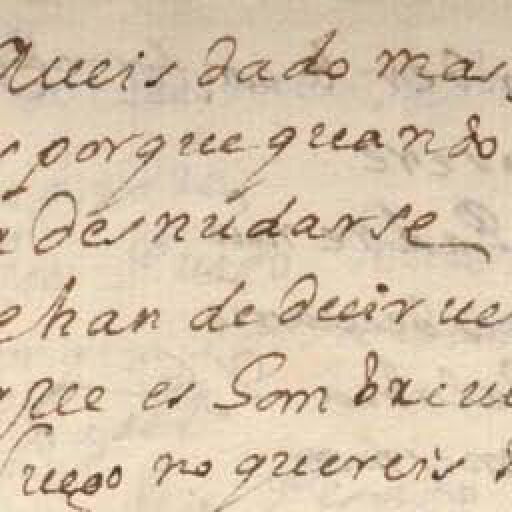 Aueis dado mas
porque quando
desnudarse
han de decir ue
que es Sombreue
luego no quereis